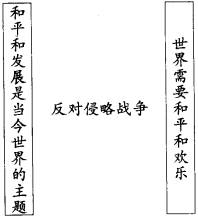 和平和发展是当今世界的主题
反对侵略战争
世界需要和平和欢乐